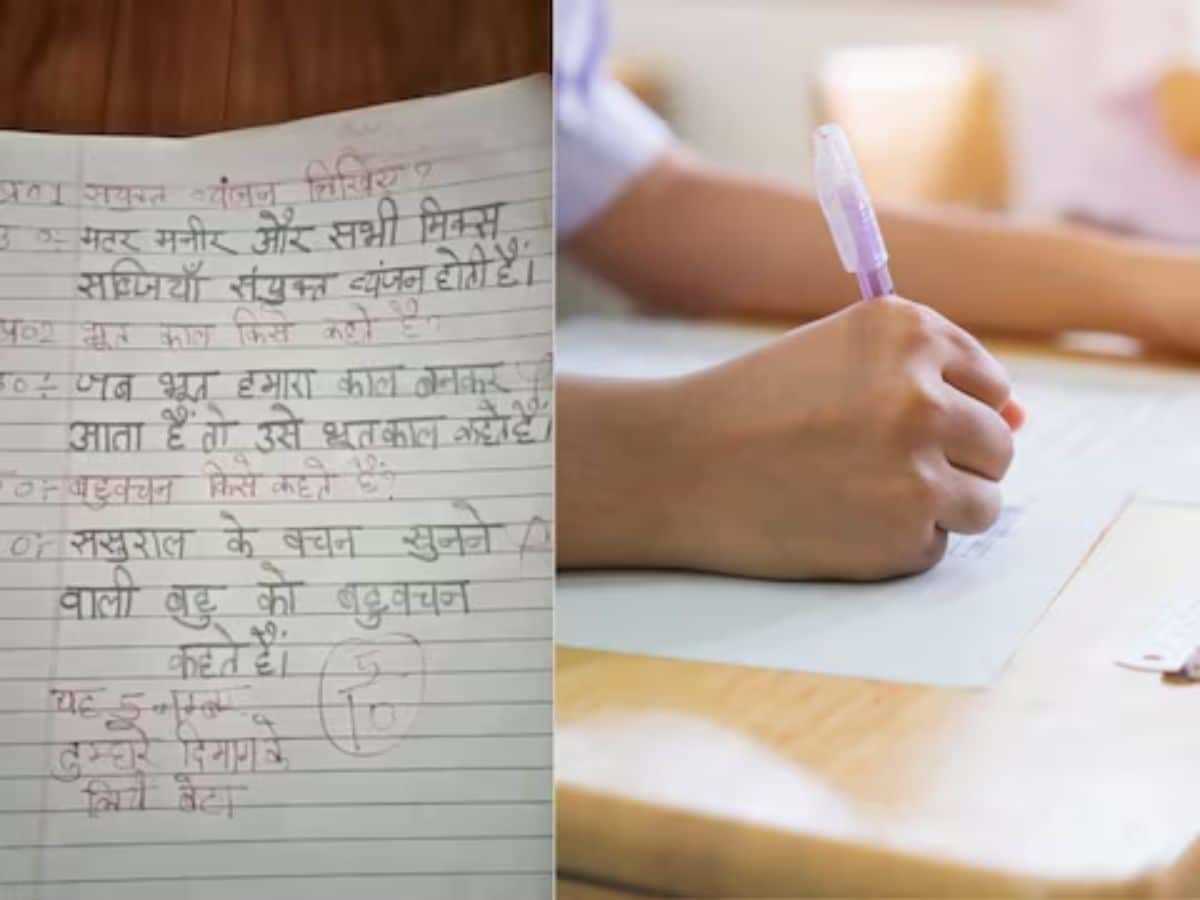 प्र०1 सयुक्त व्यंजन लिखिए?
उ०:- मटर मनीर और सभी मिक्स
सब्जियाँ संयुक्त व्यंजन होती हैं।
प्र०2 भूत काल किसे कहते है?
उ०:- जब भूत हमारा काल बनकर
आता हैं तो उसे भूतकाल कहते हैं।
बहुवचन किसे कहते हैं?
ससुराल के वचन सुनने
वाली बहु को बहुवचन
कहते हैं।
5
10
यह 5 नम्बर
तुम्हारे दिमाग के
लिये बेटा